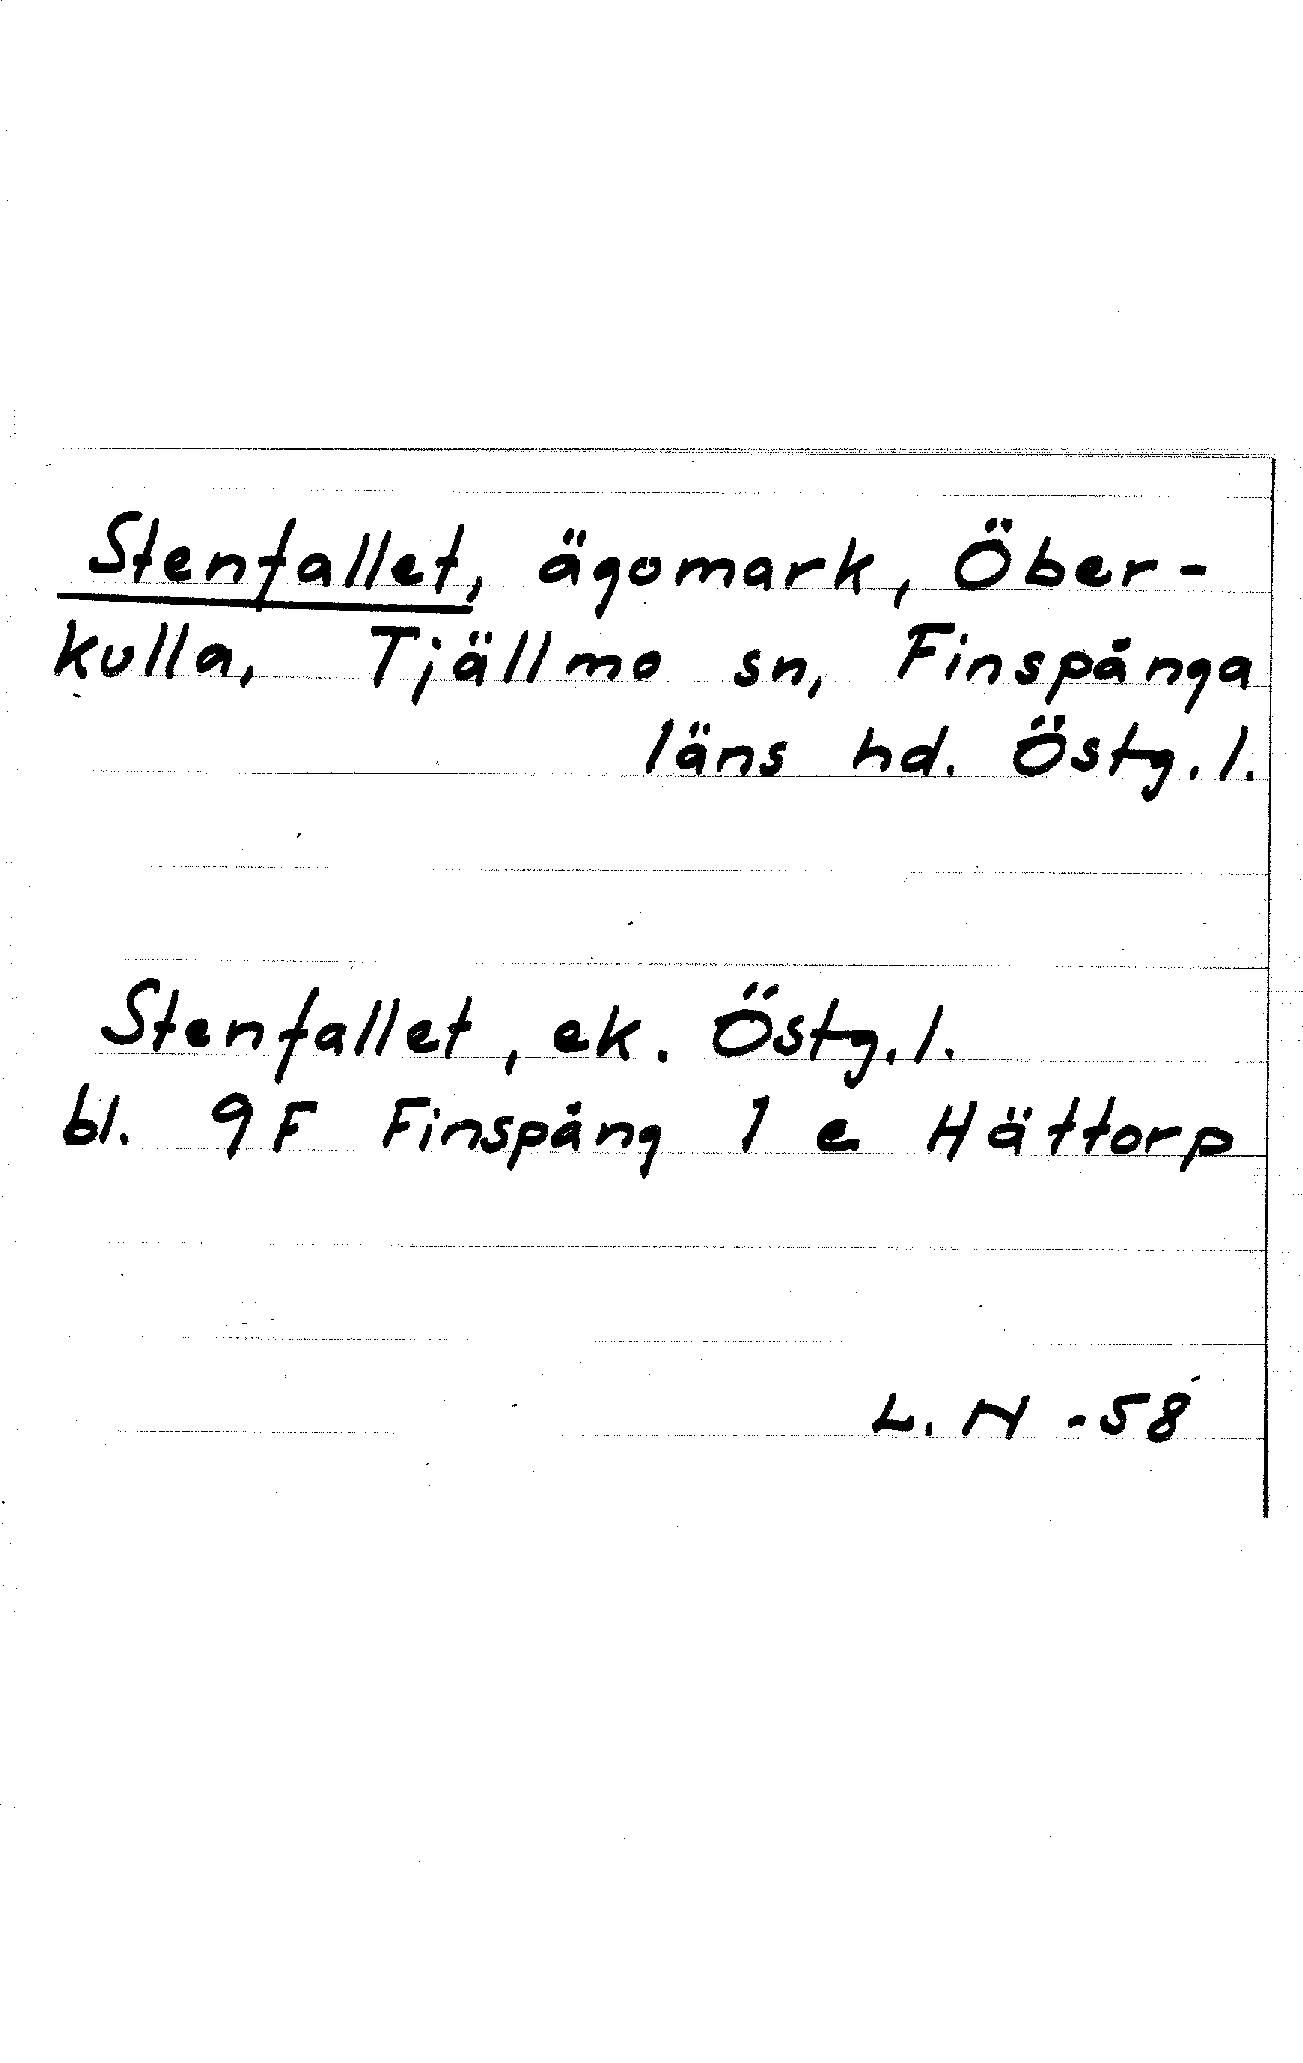 Stenfallet, ägomark, Öber-
kulla, Tjällmo sn, Finspånga
läns hd. Östg. l.
Stenfallet, ek. Östg. l.
bl. 9F Finspång 1 e Hättorp
L. N -58